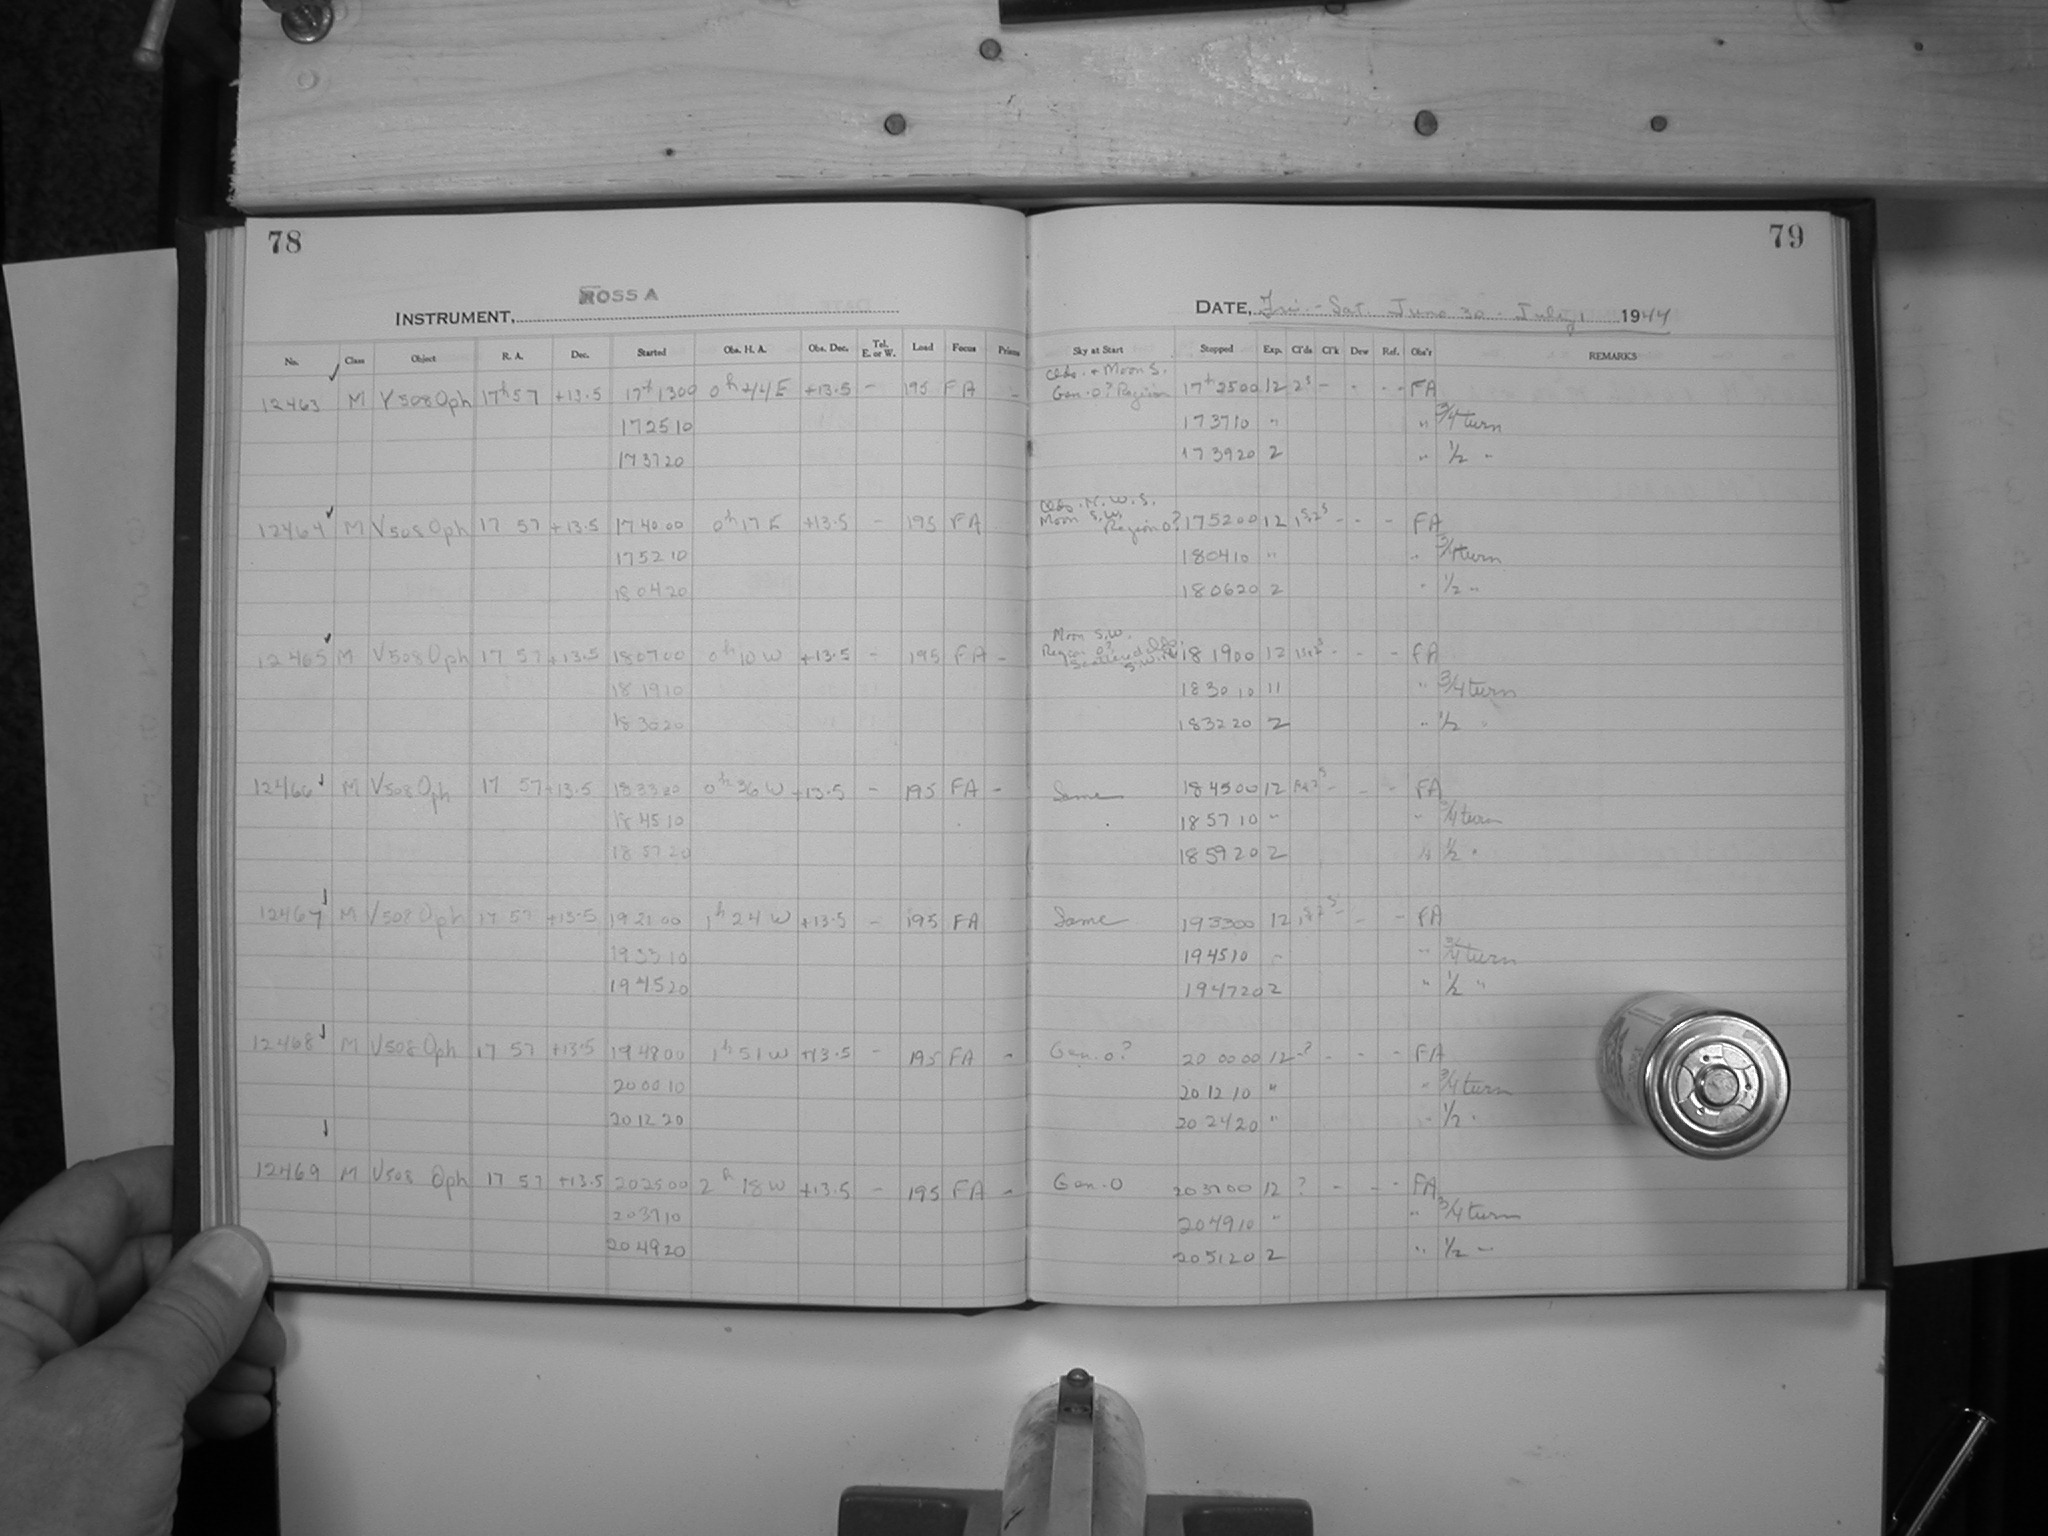 78
ROSS A
INSTRUMENT,
No. Class Object R. A. Dec. Started Obs. H. A. Obs. Dec. Tel. E. or W. Load Focus Prism
12463 M V508 Oph 17h 57 +13.5 17h 1300 0h 44 E +13.5 - 195 FA -
172510
173720
12464 M V508 Oph 17 57 +13.5 174000 0h 17 E +13.5 - 195 FA
175210
180420
12465 M V508 Oph 17 57 +13.5 180700 0h 10 W +13.5 - 195 FA -
181910
183020
12466 M V508 Oph 17 57 +13.5 183320 0h 36 W +13.5 - 195 FA -
184510
185720
12467 M V508 Oph 17 57 +13.5 192100 1h 24 W +13.5 - 195 FA
193310
194520
12468 M V508 Oph 17 57 +13.5 194800 1h 51 W +13.5 - 195 FA -
200010
201220
12469 M V508 Oph 17 57 +13.5 202500 2h 18 W +13.5 - 195 FA -
203710
204920
79
DATE, Fri. - Sat. June 30 - July 1 1944
Sky at Start Stopped Exp. Cl'ds Cl'k Dew Ref. Obs'r REMARKS
Clds. + Moon S.
Gen. 0? Region 17h 2500 12 2s - - - - FA
173710 " " 3/4 turn
173920 2 " 1/2 "
Clds. N. W. S.
Moon S.W.
Region 0? 175200 12 - - - FA
180410 " " 3/4 turn
180620 2 " 1/2 "
Moon S.W.
Region 0?
Scattered 181900 12 - - - FA
183010 11 " 3/4 turn
183220 2 " 1/2 "
Same 184500 12 - - - FA
185710 " " 3/4 turn
185920 2 " 1/2 "
Same 193300 12 - - - FA
194510 " " 3/4 turn
194720 2 " 1/2 "
Gen. 0? 200000 12 -? - - - FA
201210 " " 3/4 turn
202420 " " 1/2 "
Gen. 0 203700 12 ? - - - FA
204910 " " 3/4 turn
205120 2 " 1/2 "